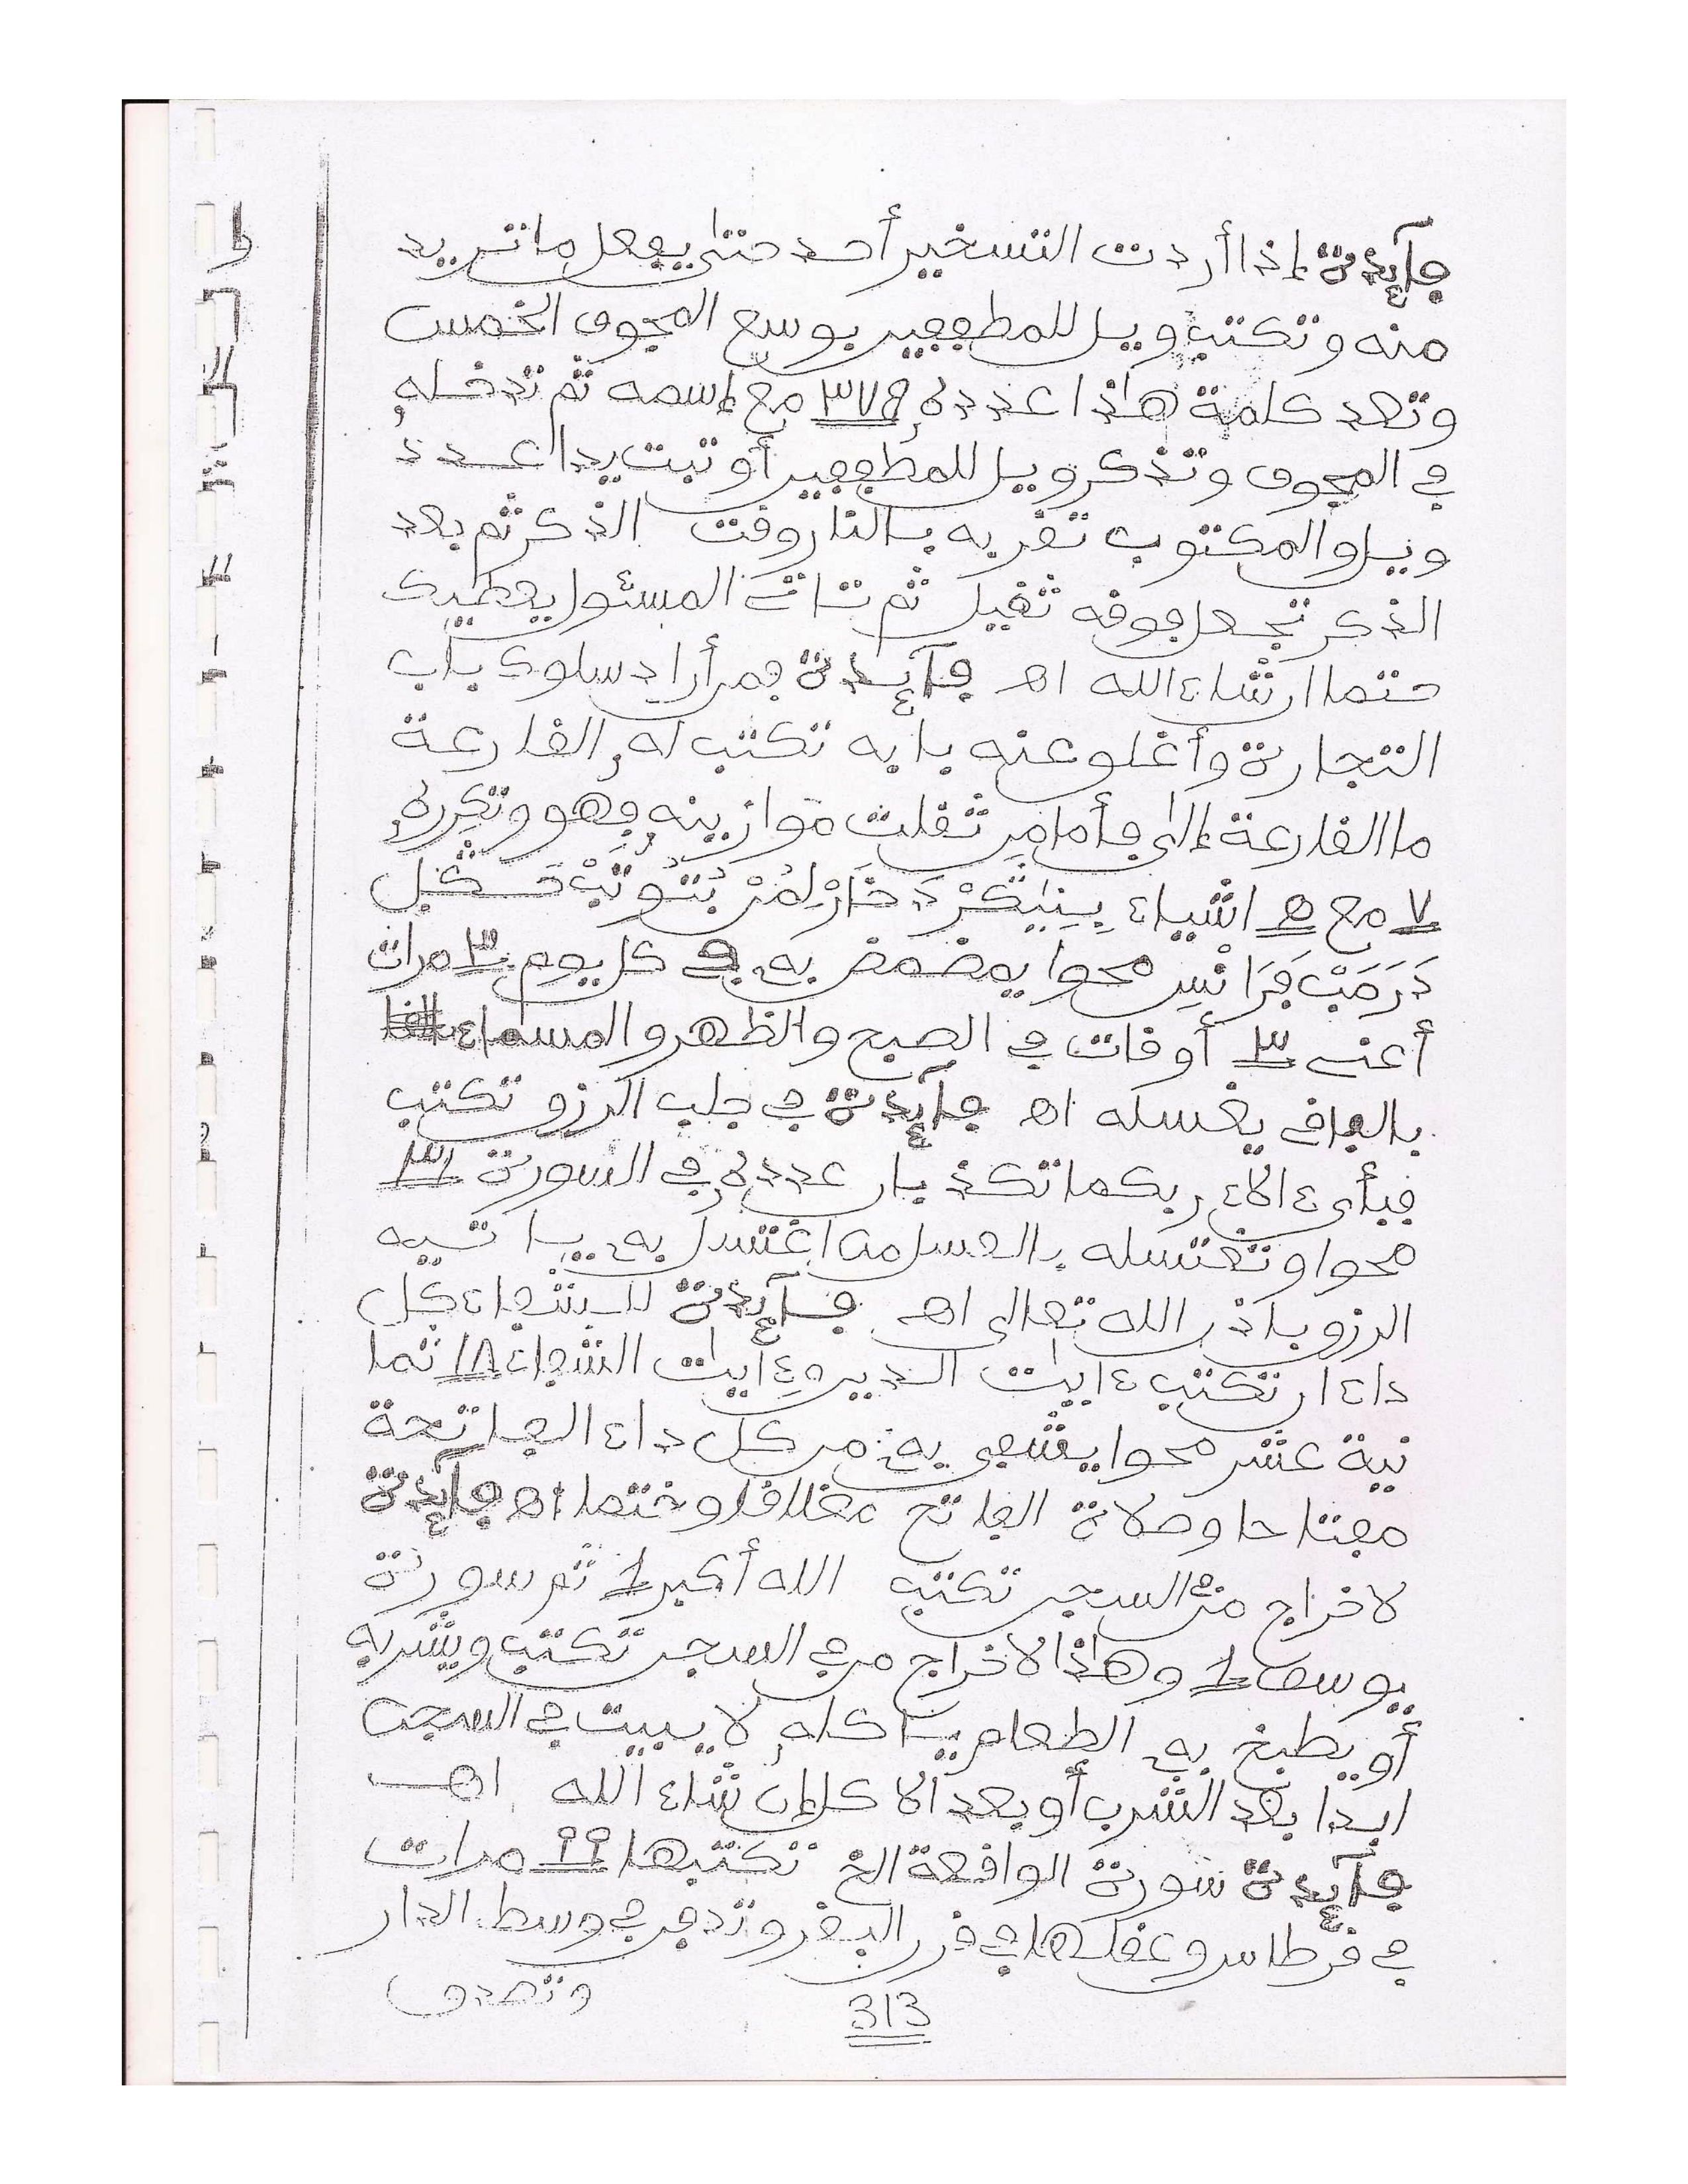 فآئدة إذا أردت التسخير أحد حتى يفعل ما تريد
منه وتكتب ويل للمطففين بوسع المجوف الخمس
وتعد كلمة هذا عدده ٣٧٩ مع إسمه ثم تدخله
في المجوف وتذكر ويل للمطففين أو تبت يدا عدد
ويل والمكتوب تقربه بالنار وقت الذكر ثم بعد
الذكر تجعل فوقه ثقيل ثم تات المسئول يعطيك
حتما ان شاء الله اهـ فآئدة فمن أراد سلوك باب
التجارة وأغلو عنه بابه تكتب له القارعة
ما القارعة إلى فأما من ثقلت موازينه فهو وتكرره
٧ مع ٥ اشياء
محوا يمضمض به في كل يوم ٣ مرات
أعنى ٣ أوقات في الصبح والظهر والمساء
بالعافى يغسله اهـ فآئدة في جلب الرزق تكتب
فبأى ءالاء ربكما تكذبان عدده في السورة ٣١
محوا وتغتسله بالعسل من اغتسل به ياتيه
الرزق باذن الله تعالى اهـ فآئدة للشفاء كل
داء ان تكتب ءايات الدين وءايات الشفاء ١٨ ثما
نية عشر محوا يشفى به من كل داء الفاتحة
مفتاحا وصلاة الفاتح مغلاقا وختما اهـ فآئدة
لاخراج من السجن تكتب الله أكبر ١ ثم سورة
يوسف ١ وهذا لاخراج من السجن تكتب ويشربه
أو يطبخ به الطعام ياكله لا يبيت في السجن
ابدا بعد الشرب أو بعد الاكل إن شاء الله اهـ
فآئدة سورة الواقعة الخ تكتبها ٩٩ مرات
في قرطاس وعقلها في قرن البقر وتدفن في وسط الدار
وتصدق
313